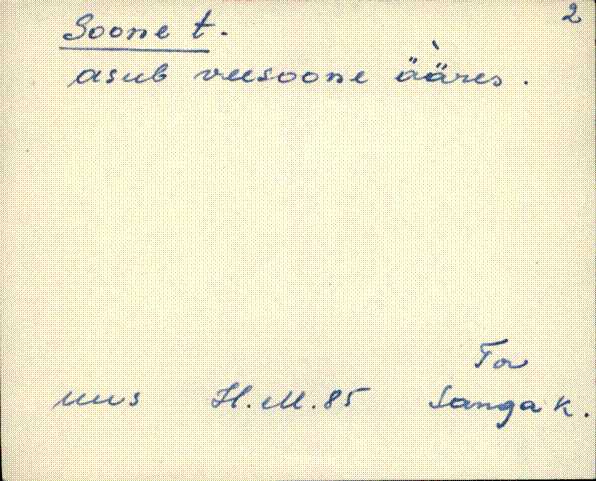 2
Soone t.
asub veesoone ääres.
Tor
uus H.M.85 Sanga k.